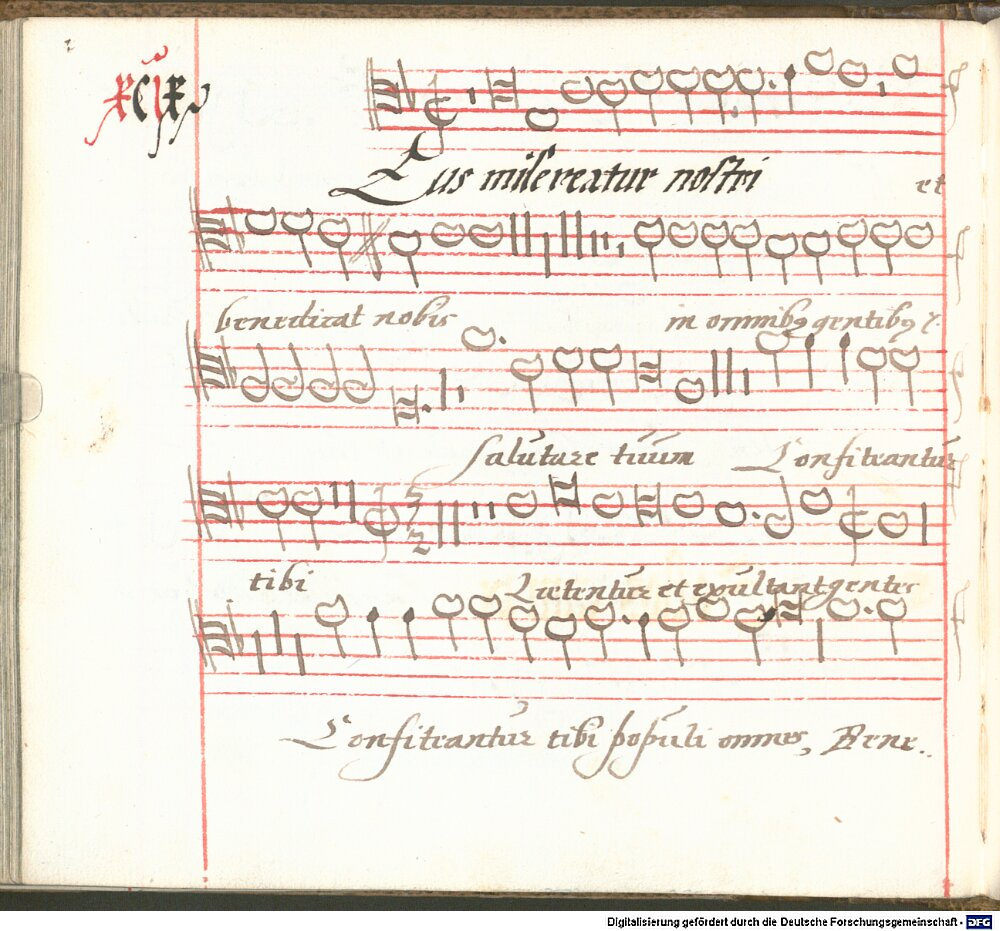 xcix
Eus misereatur nostri et
benedicat nobis in omnibꝰ gentibꝰ
salutare tuum Confiteantur
tibi Letentur et exultant gentes
Confiteantur tibi populi omnes, Bene..
Digitalisierung gefördert durch die Deutsche Forschungsgemeinschaft - DFG